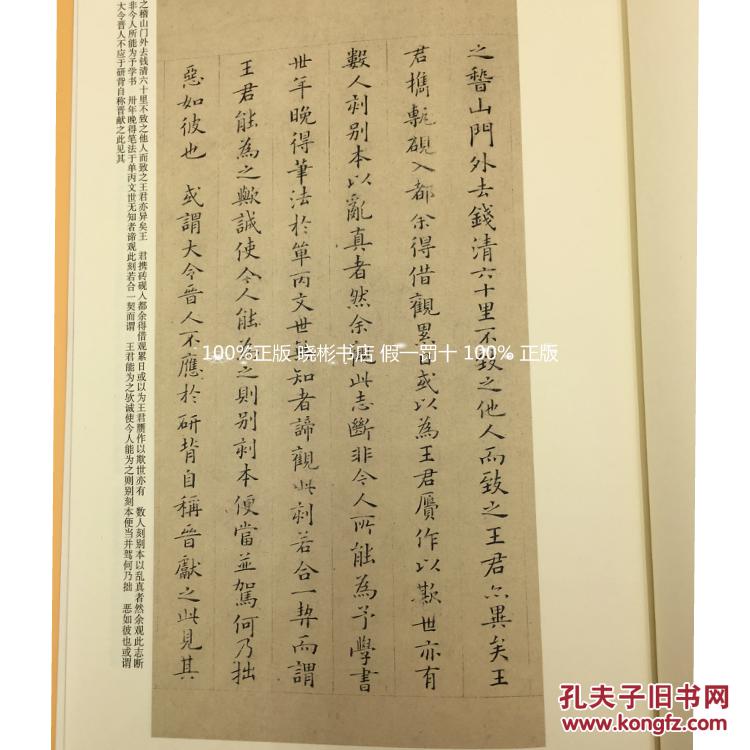 之嵇山門外去錢清六十里不致之他人而致之王君亦異矣王
君攜甎硯入都余得借觀累日或以為王君贋作以欺世亦有
數人刻別本以亂真者然余觀此志斷非今人所能為予學書
卅年晚得筆法於單丙文世無知者諦觀此刻若合一契而謂
王君能為之歟誠使今人能為之則別刻本便當並駕何乃拙
惡如彼也 或謂大令晉人不應於研背自稱晉獻之此見其
之稽山门外去钱清六十里不致之他人而致之王君亦异矣王 君携砖砚入都余得借观累日或以为王君赝作以欺世亦有 数人刻别本以乱真者然余观此志断
非今人所能为予学书 卅年晚得笔法于单丙文世无知者谛观此刻若合一契而谓 王君能为之欤诚使今人能为之则别刻本便当并驾何乃拙 恶如彼也或谓
大令晋人不应于研背自称晋献之此见其
100%正版 晓彬书店 假一罚十 100% 正版
孔夫子旧书网
www.kongfz.com